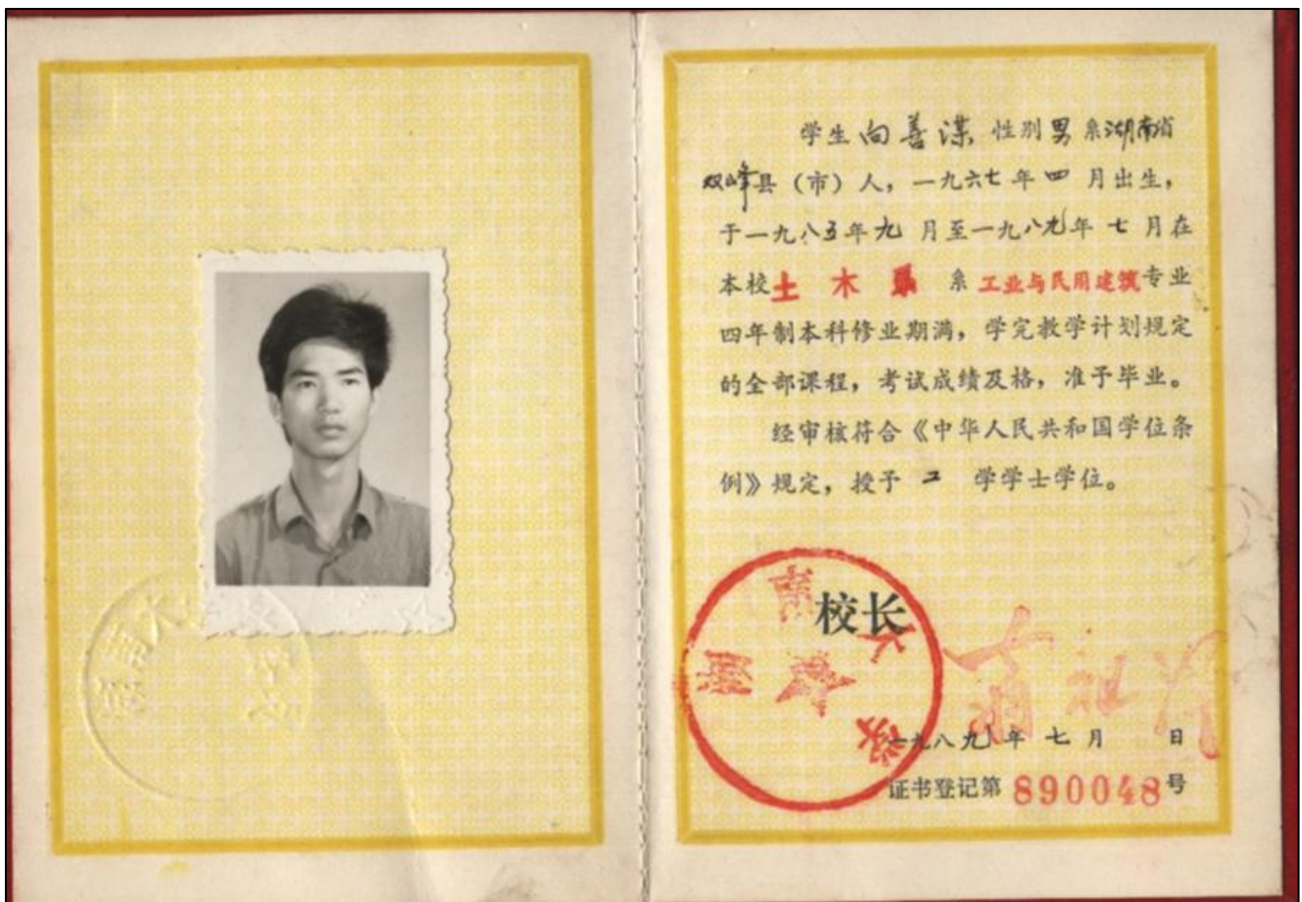 学生向善谋 性别男 系湖南省
双峰县（市）人，一九六七年四月出生，
于一九八五年九月至一九八九年七月在
本校土木系 系 工业与民用建筑专业
四年制本科修业期满，学完教学计划规定
的全部课程，考试成绩及格，准予毕业。
经审核符合《中华人民共和国学位条
例》规定，授予 工 学学士学位。
校长
一九八九年七月 日
证书登记第 890048号